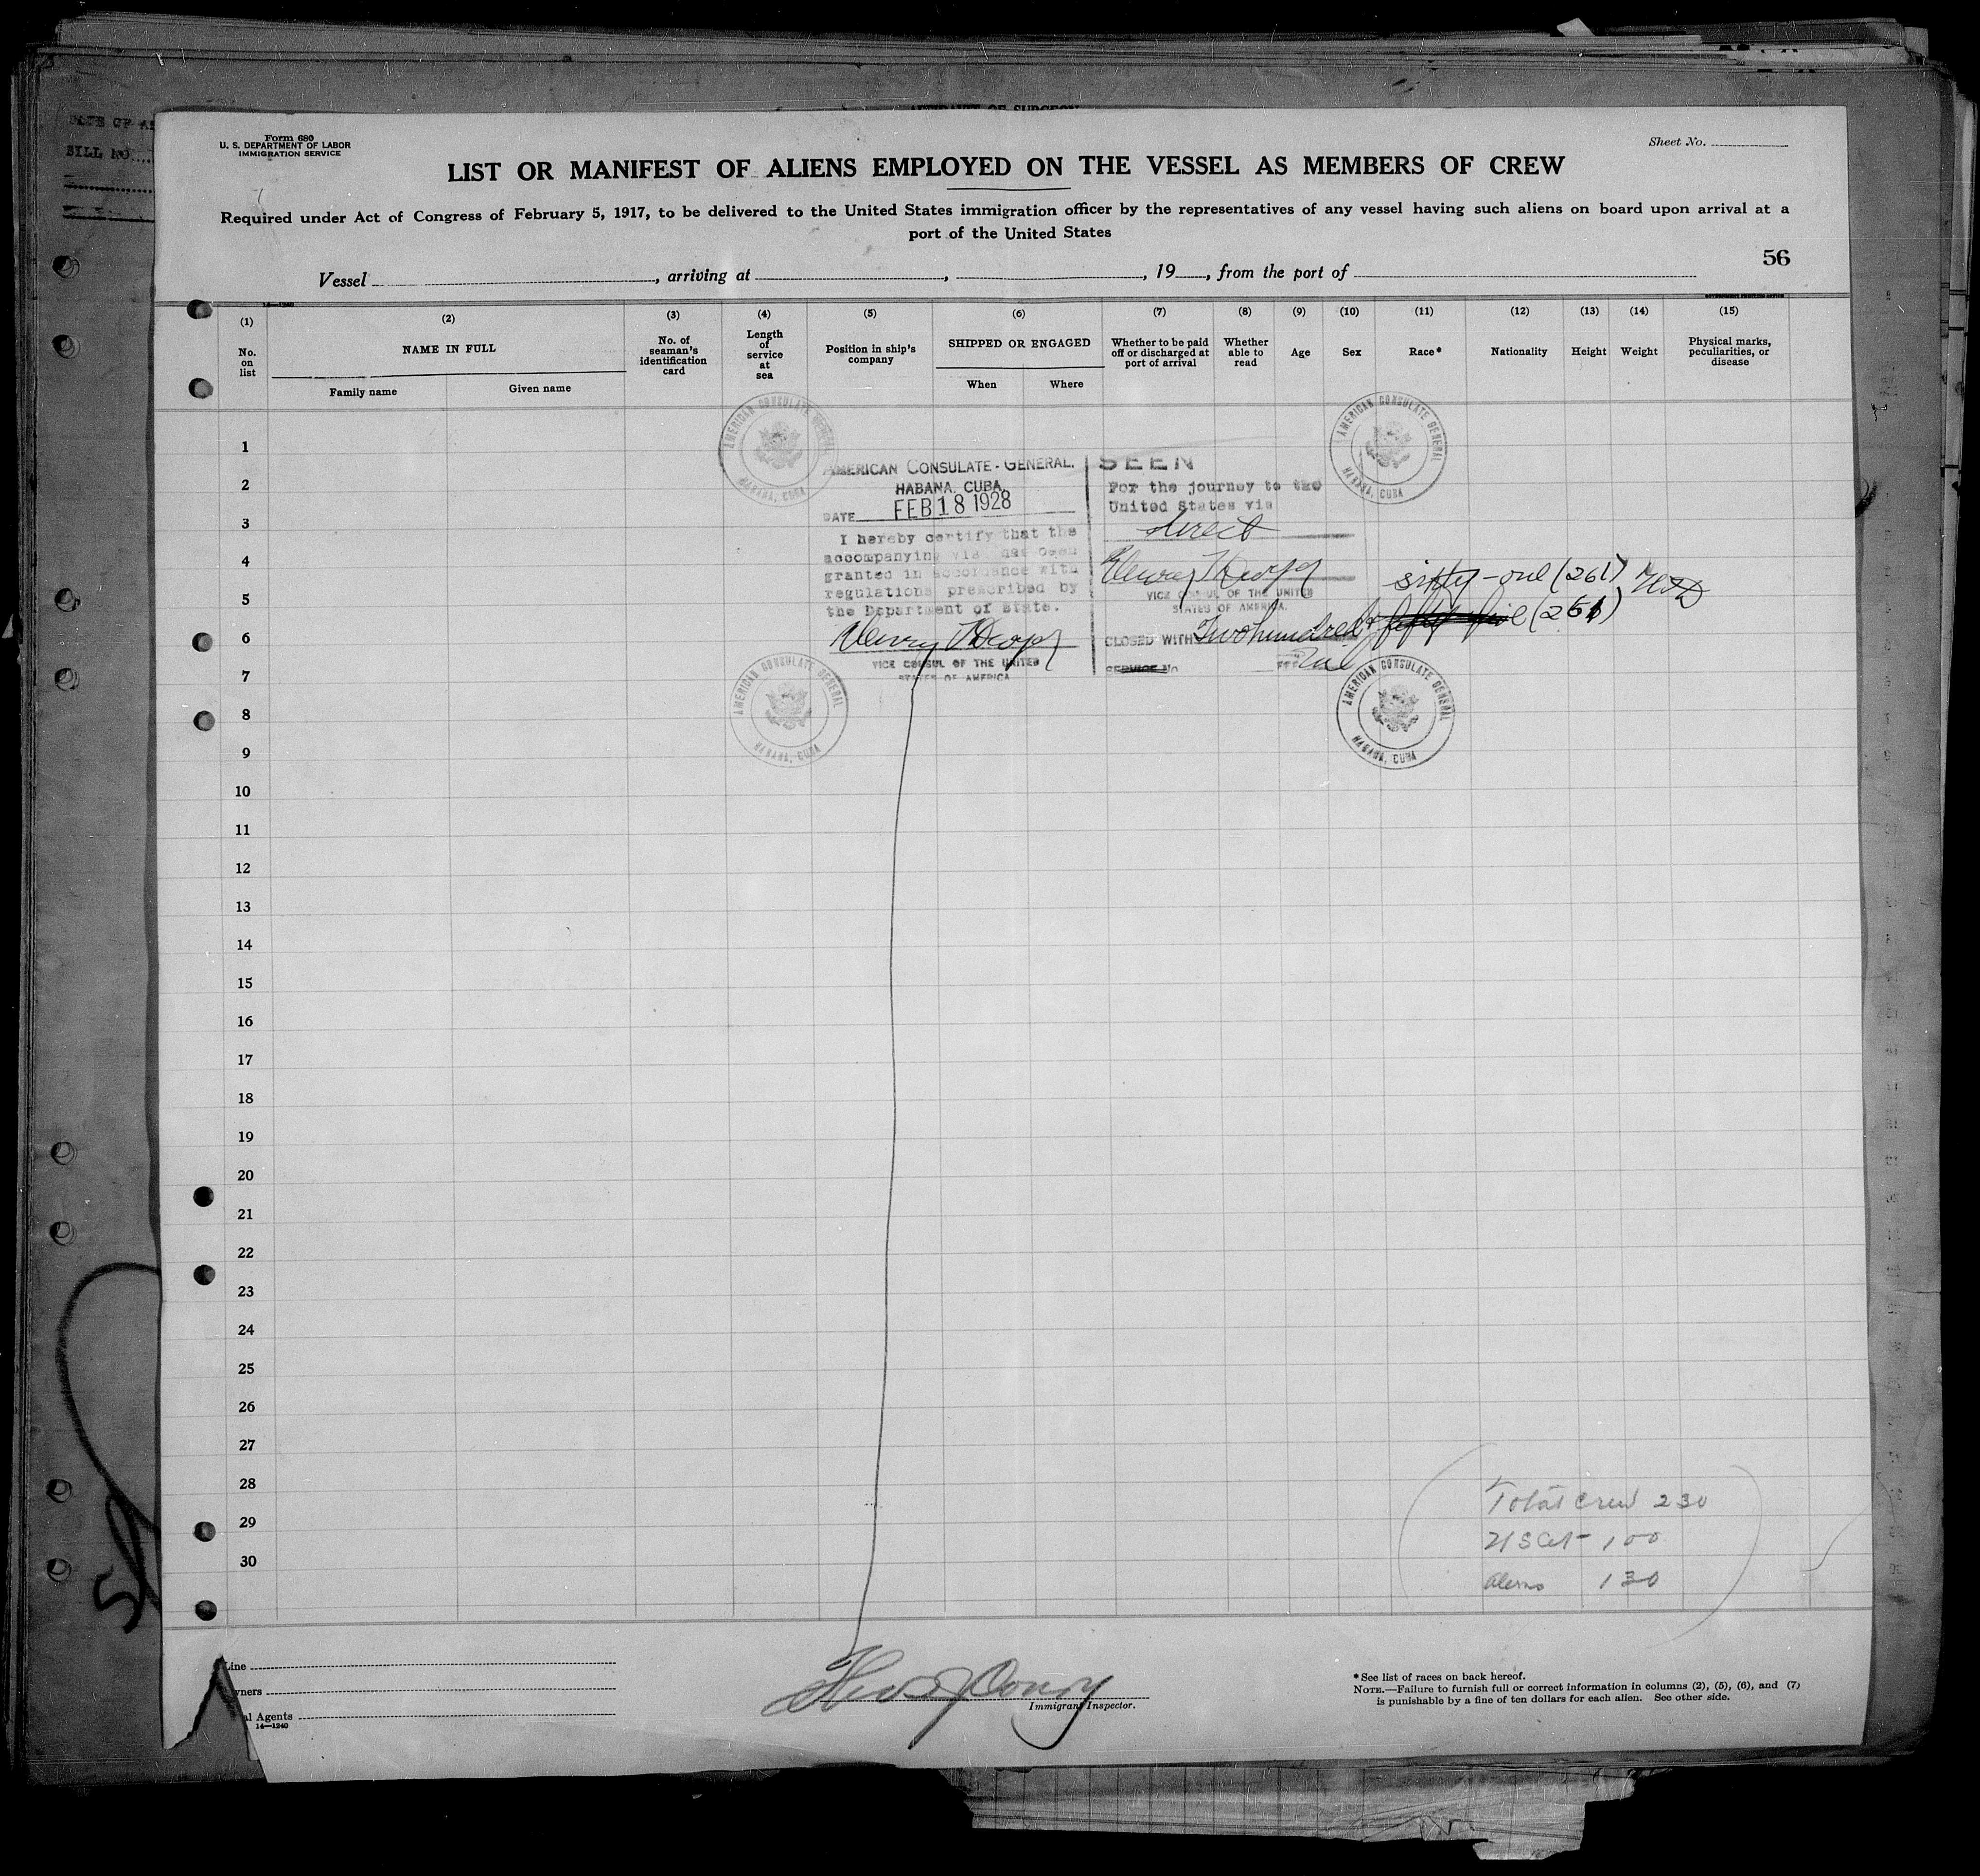 AFFIDAVIT OF SURGEON
DATE OF
BILL NO.
Form 680
U. S. DEPARTMENT OF LABOR
IMMIGRATION SERVICE
Sheet No.
LIST OR MANIFEST OF ALIENS EMPLOYED ON THE VESSEL AS MEMBERS OF CREW
Required under Act of Congress of February 5, 1917, to be delivered to the United States immigration officer by the representatives of any vessel having such aliens on board upon arrival at a
port of the United States
56
Vessel , arriving at , , 19 , from the port of
14—1240
GOVERNMENT PRINTING OFFICE
(1) (2) (3) (4) (5) (6) (7) (8) (9) (10) (11) (12) (13) (14) (15)
No. on list
NAME IN FULL
Family name
Given name
No. of seaman's identification card
Length of service at sea
Position in ship's company
SHIPPED OR ENGAGED
When
Where
Whether to be paid off or discharged at port of arrival
Whether able to read
Age
Sex
Race*
Nationality
Height
Weight
Physical marks, peculiarities, or disease
AMERICAN CONSULATE GENERAL
HABANA, CUBA
AMERICAN CONSULATE GENERAL
HABANA, CUBA
AMERICAN CONSULATE-GENERAL.
HABANA, CUBA,
DATE FEB 18 1928
I hereby certify that the
accompanying visa has been
granted in accordance with
regulations prescribed by
the Department of State.
VICE CONSUL OF THE UNITED
STATES OF AMERICA
SEEN
For the journey to the
United States via
direct
VICE CONSUL OF THE UNITED
STATES OF AMERICA.
sixty-one (261)
CLOSED WITH Two hundred & (261)
SERVICE No
AMERICAN CONSULATE GENERAL
HABANA, CUBA
AMERICAN CONSULATE GENERAL
HABANA, CUBA
1
2
3
4
5
6
7
8
9
10
11
12
13
14
15
16
17
18
19
20
21
22
23
24
25
26
27
28
29
30
Total crew 230
USCit 100
aliens 130
Line
wners
al Agents
14—1240
Immigrant Inspector.
*See list of races on back hereof.
NOTE.—Failure to furnish full or correct information in columns (2), (5), (6), and (7)
is punishable by a fine of ten dollars for each alien. See other side.